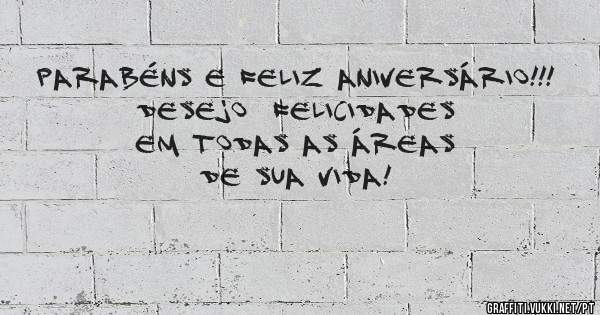 PARABÉNS E FELIZ ANIVERSÁRIO!!!
DESEJO FELICIDADES
EM TODAS AS ÁREAS
DE SUA VIDA!
GRAFFITI.VUKKI.NET/PT